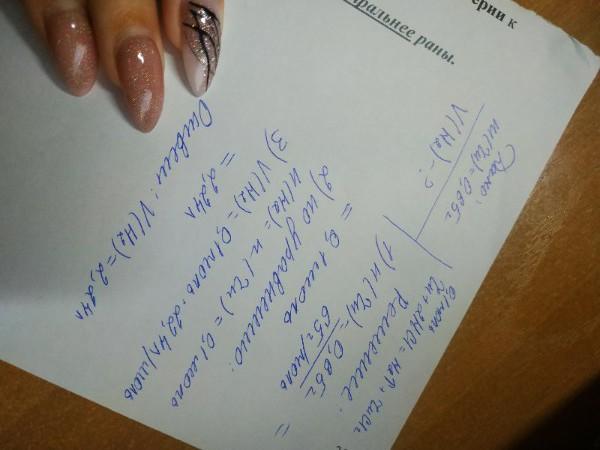 ерии к
ральнее раны.
Дано:
m(Zn)=0,65г
V(H2)-?
0,1моль
Zn+2HCl=H2↑+ZnCl2
Решение:
1) n(Zn)=0,65г
65г/моль
=
=0,1моль
2) по уравнению:
n(H2)=n(Zn)=0,1моль
3) V(H2)=0,1моль·22,4л/моль
=2,24л
Ответ: V(H2)=2,24л